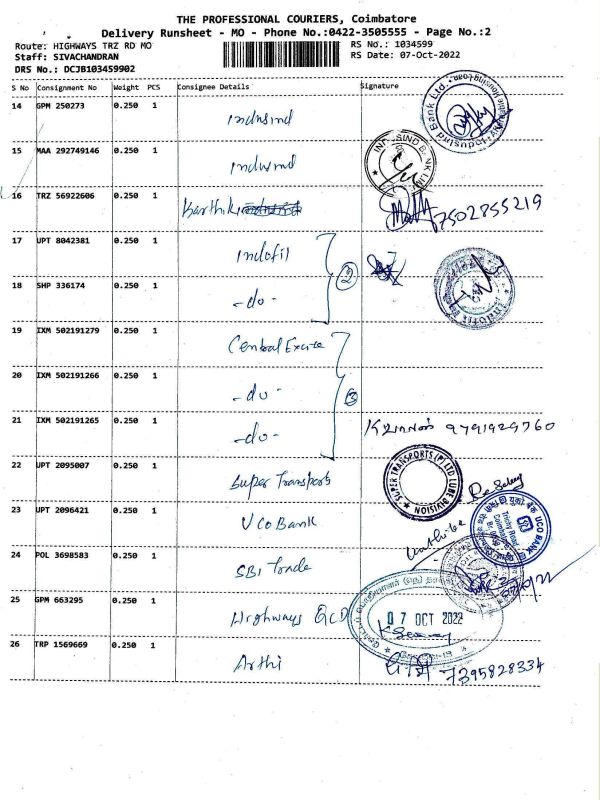 THE PROFESSIONAL COURIERS, Coimbatore
Delivery Runsheet - MO - Phone No.:0422-3505555 - Page No.:2
Route: HIGHWAYS TRZ RD MO
RS No.: 1034599
Staff: SIVACHANDRAN
RS Date: 07-Oct-2022
DRS No.: DCJB103459902
S No Consignment No Weight PCS Consignee Details Signature
14 GPM 250273 0.250 1 Indusind
15 MAA 292749146 0.250 1 Indusind
16 TRZ 56922606 0.250 1 Karthik 7502855219
17 UPT 8042381 0.250 1 Indofil
18 SHP 336174 0.250 1 -do- 2
19 IXM 502191279 0.250 1 Central Excise
20 IXM 502191266 0.250 1 -do- 3
21 IXM 502191265 0.250 1 -do- 9791929760
22 UPT 2095007 0.250 1 Super Transports
SUPER TRANSPORTS (P) LTD LUBE DIVISION
23 UPT 2096421 0.250 1 UCO Bank
UCO BANK
24 POL 3698583 0.250 1 SBI Trade
25 GPM 663295 0.250 1 Highways
07 OCT 2022
26 TRP 1569669 0.250 1 Arthi 7395828334